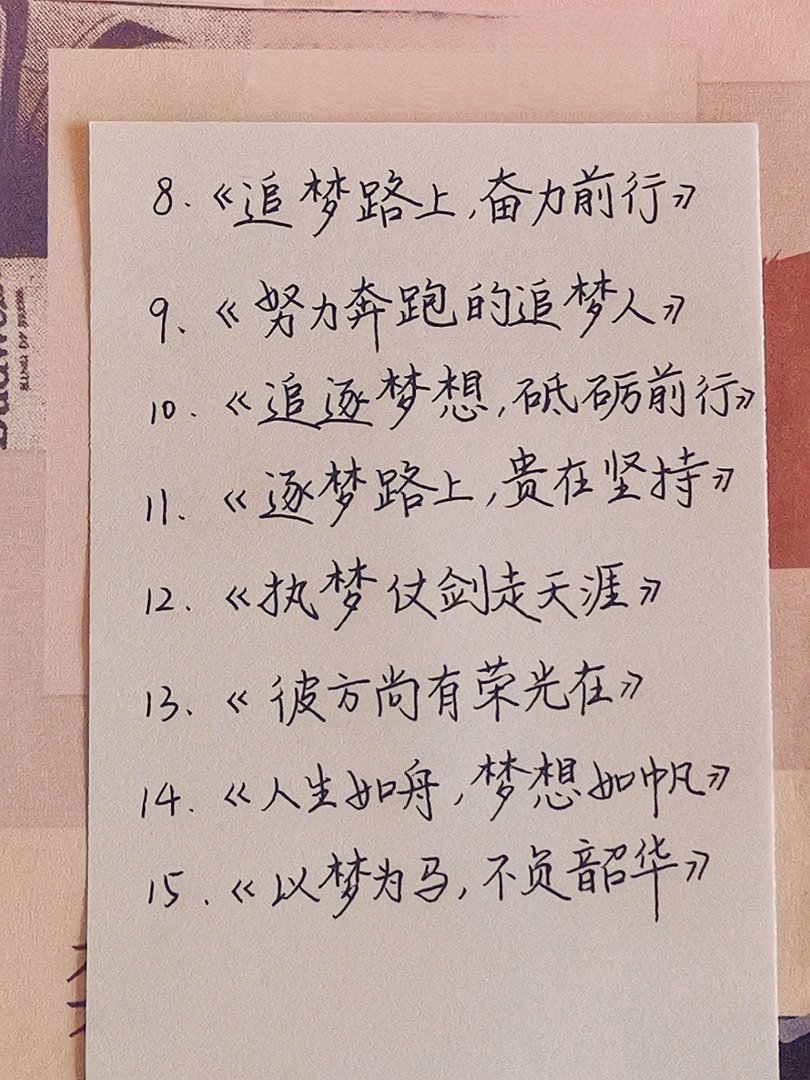 8.《追梦路上,奋力前行》
9.《努力奔跑的追梦人》
10.《追逐梦想,砥砺前行》
11.《逐梦路上,贵在坚持》
12.《执梦仗剑走天涯》
13.《彼方尚有荣光在》
14.《人生如舟,梦想如帆》
15.《以梦为马,不负韶华》